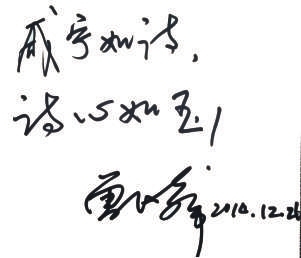 咸宁如诗,
诗心如玉!
2014.12.26